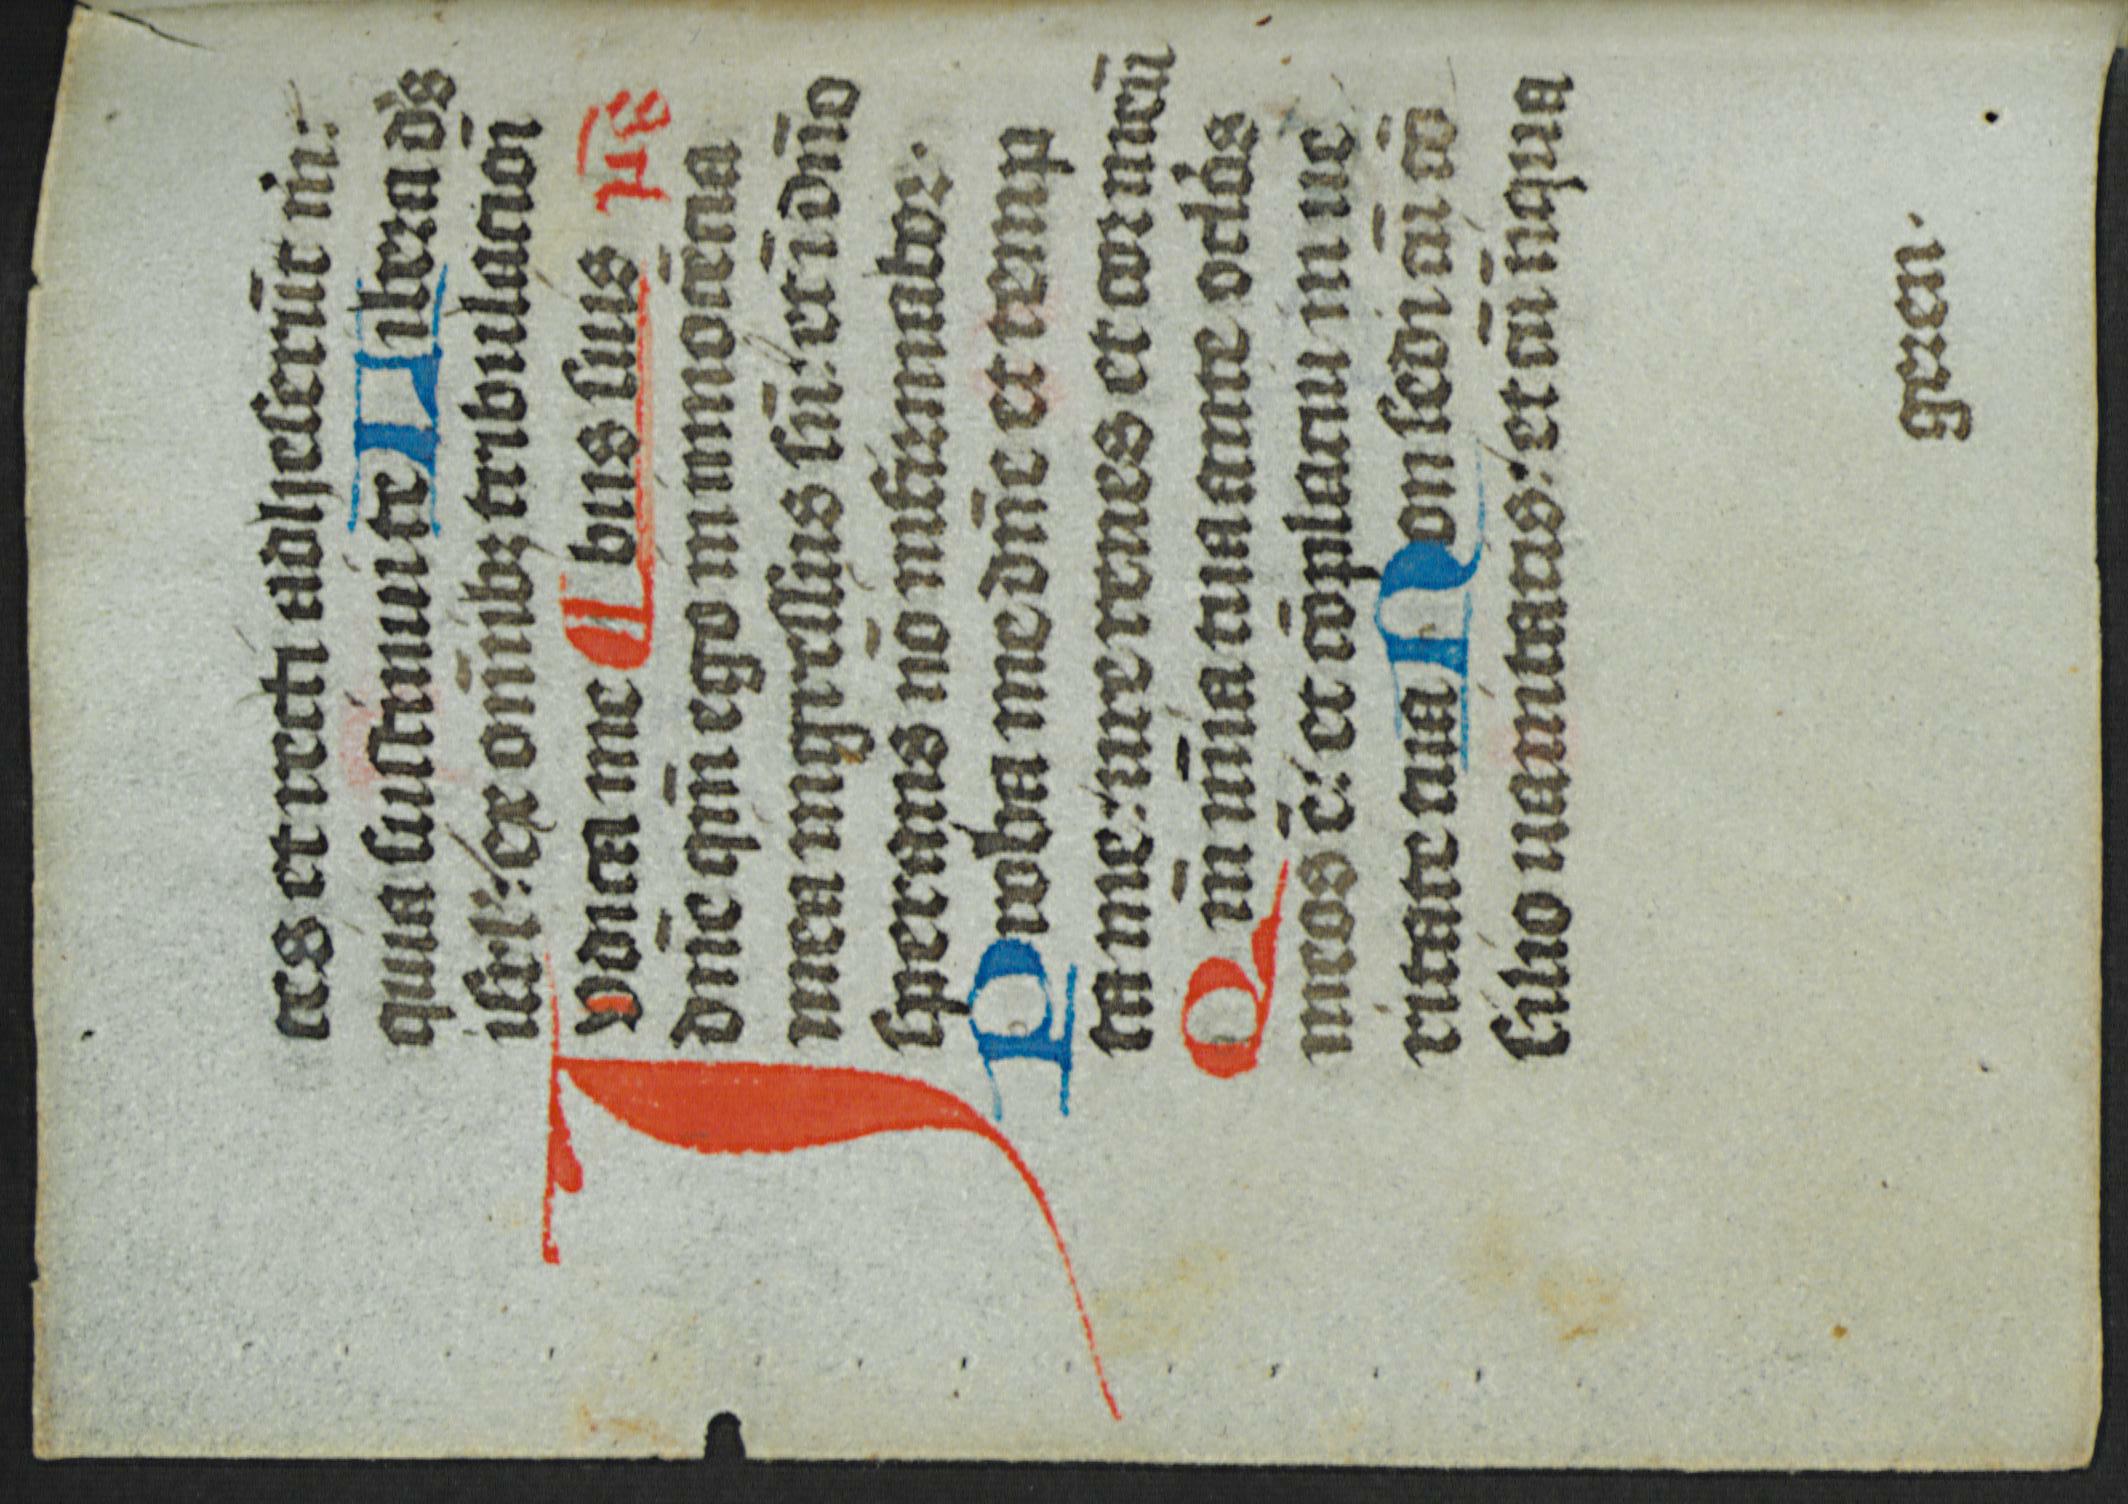 tes et recti adheserūt m̄:
quia sustinui te Libera ds̄
isrl̄: ex om̄ibꝫ tribulacōi
bus suis p̄s
Iudica me
dn̄e qm̄ ego in inocētia
mea ingressus sū: et ī dn̄o
sperans nō infirmabor.
Proba me dn̄e et temp
ta me: ure renes et cor meū
Qm̄ mīa tua ante oclōs
meos ē: et cōplacui in ue
ritate tua Non sedi cū cō
silio uanitatis: et cū iniqua
geren.